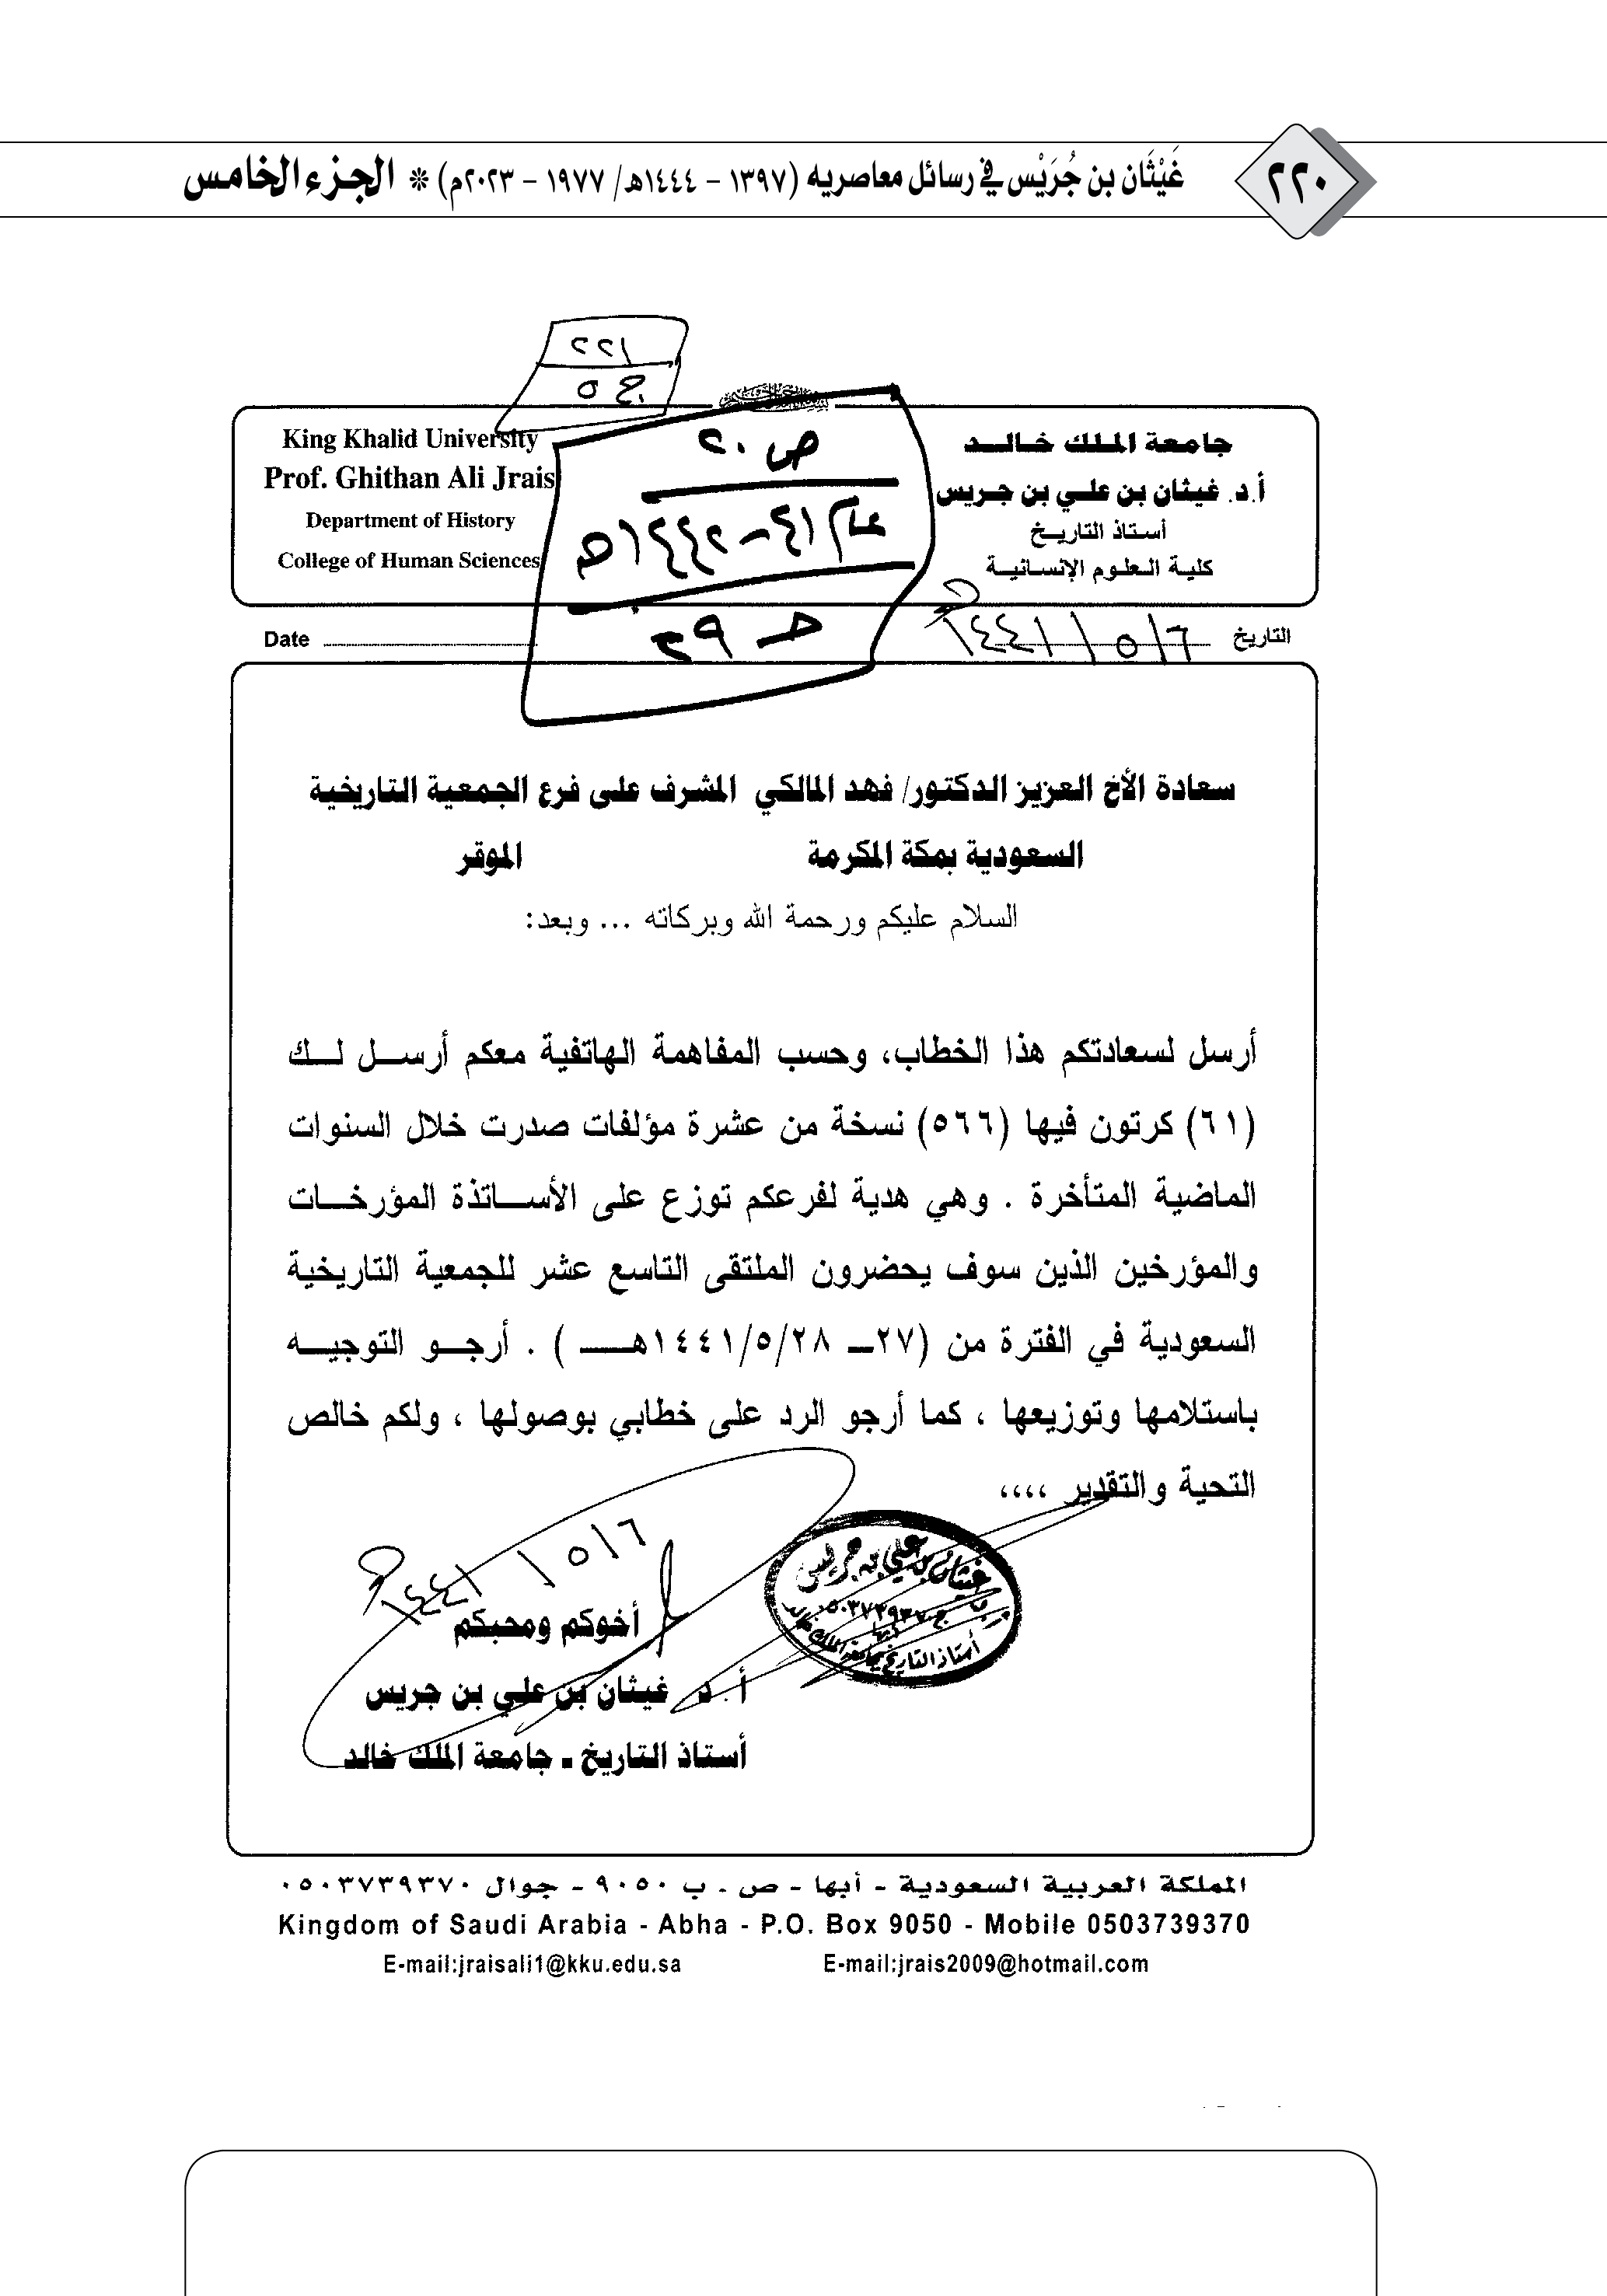 ٢٢٠
غَيْثَان بن جُرَيْس في رسائل معاصريه (١٣٩٧ - ١٤٤٤هـ/ ١٩٧٧ - ٢٠٢٣م) * الجزء الخامس
٢٢١
ج ٥
جامعة الملك خالد
أ.د. غيثان بن علي بن جريس
أستاذ التاريخ
كلية العلوم الإنسانية
King Khalid University
Prof. Ghithan Ali Jrais
Department of History
College of Human Sciences
ص ٢٠
عام ٤١-١٤٤٢هـ
التاريخ ١٤٤١/٥/٦هـ
Date
سعادة الأخ العزيز الدكتور/ فهد المالكي المشرف على فرع الجمعية التاريخية
السعودية بمكة المكرمة الموقر
السلام عليكم ورحمة الله وبركاته ... وبعد:
أرسل لسعادتكم هذا الخطاب، وحسب المفاهمة الهاتفية معكم أرسل لك
(٦١) كرتون فيها (٥٦٦) نسخة من عشرة مؤلفات صدرت خلال السنوات
الماضية المتأخرة . وهي هدية لفرعكم توزع على الأساتذة المؤرخات
والمؤرخين الذين سوف يحضرون الملتقى التاسع عشر للجمعية التاريخية
السعودية في الفترة من (٢٧ـ ١٤٤١/٥/٢٨هـ ) . أرجو التوجيه
باستلامها وتوزيعها ، كما أرجو الرد على خطابي بوصولها ، ولكم خالص
التحية والتقدير ،،،،
١٤٤١/٥/٦هـ
غيثان بن علي بن جريس
أستاذ التاريخ بجامعة الملك خالد
أخوكم ومحبكم
أ . د غيثان بن علي بن جريس
أستاذ التاريخ ـ جامعة الملك خالد
المملكة العربية السعودية - أبها - ص . ب ٩٠٥٠ - جوال ٠٥٠٣٧٣٩٣٧٠
Kingdom of Saudi Arabia - Abha - P.O. Box 9050 - Mobile 0503739370
E-mail:jraisali1@kku.edu.sa E-mail:jrais2009@hotmail.com